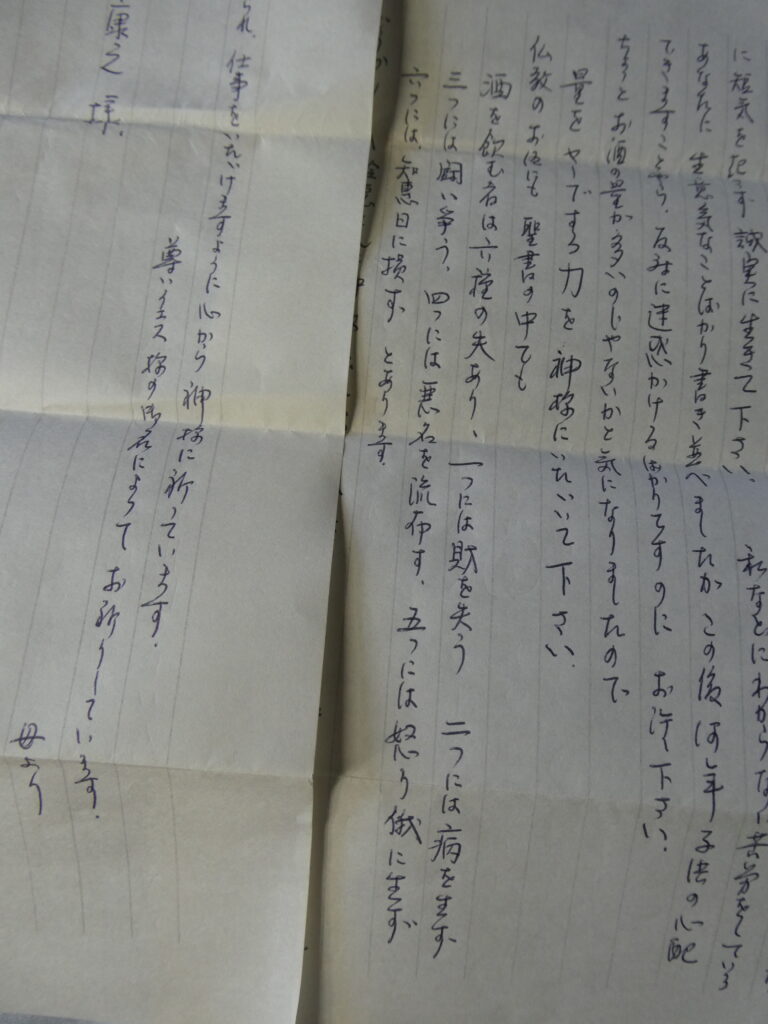 に短気を起さず誠実に生きて下さい。 私などにわからない苦労をしている
あなたに生意気なことばかり書き並べましたが この後何年子供の心配
できますことやら、反対に迷惑かけるばかりですのに お許し下さい。
ちょっとお酒の量が多いのじゃないかと気になりましたので
量をセーブする力を神様にいただいて下さい。
仏教のお話にも 聖書の中でも
酒を飲む者は六種の失あり、一つには財を失う 二つには病を生ず
三つには闘い争う、四つには悪名を流布す、五つには怒り俄に生ず
六つには、知恵日に損ず とあります。
られ、仕事をいただけますように心から神様に祈っています。
尊いイエス様の御名によって お祈りしています。
康之様、
母より